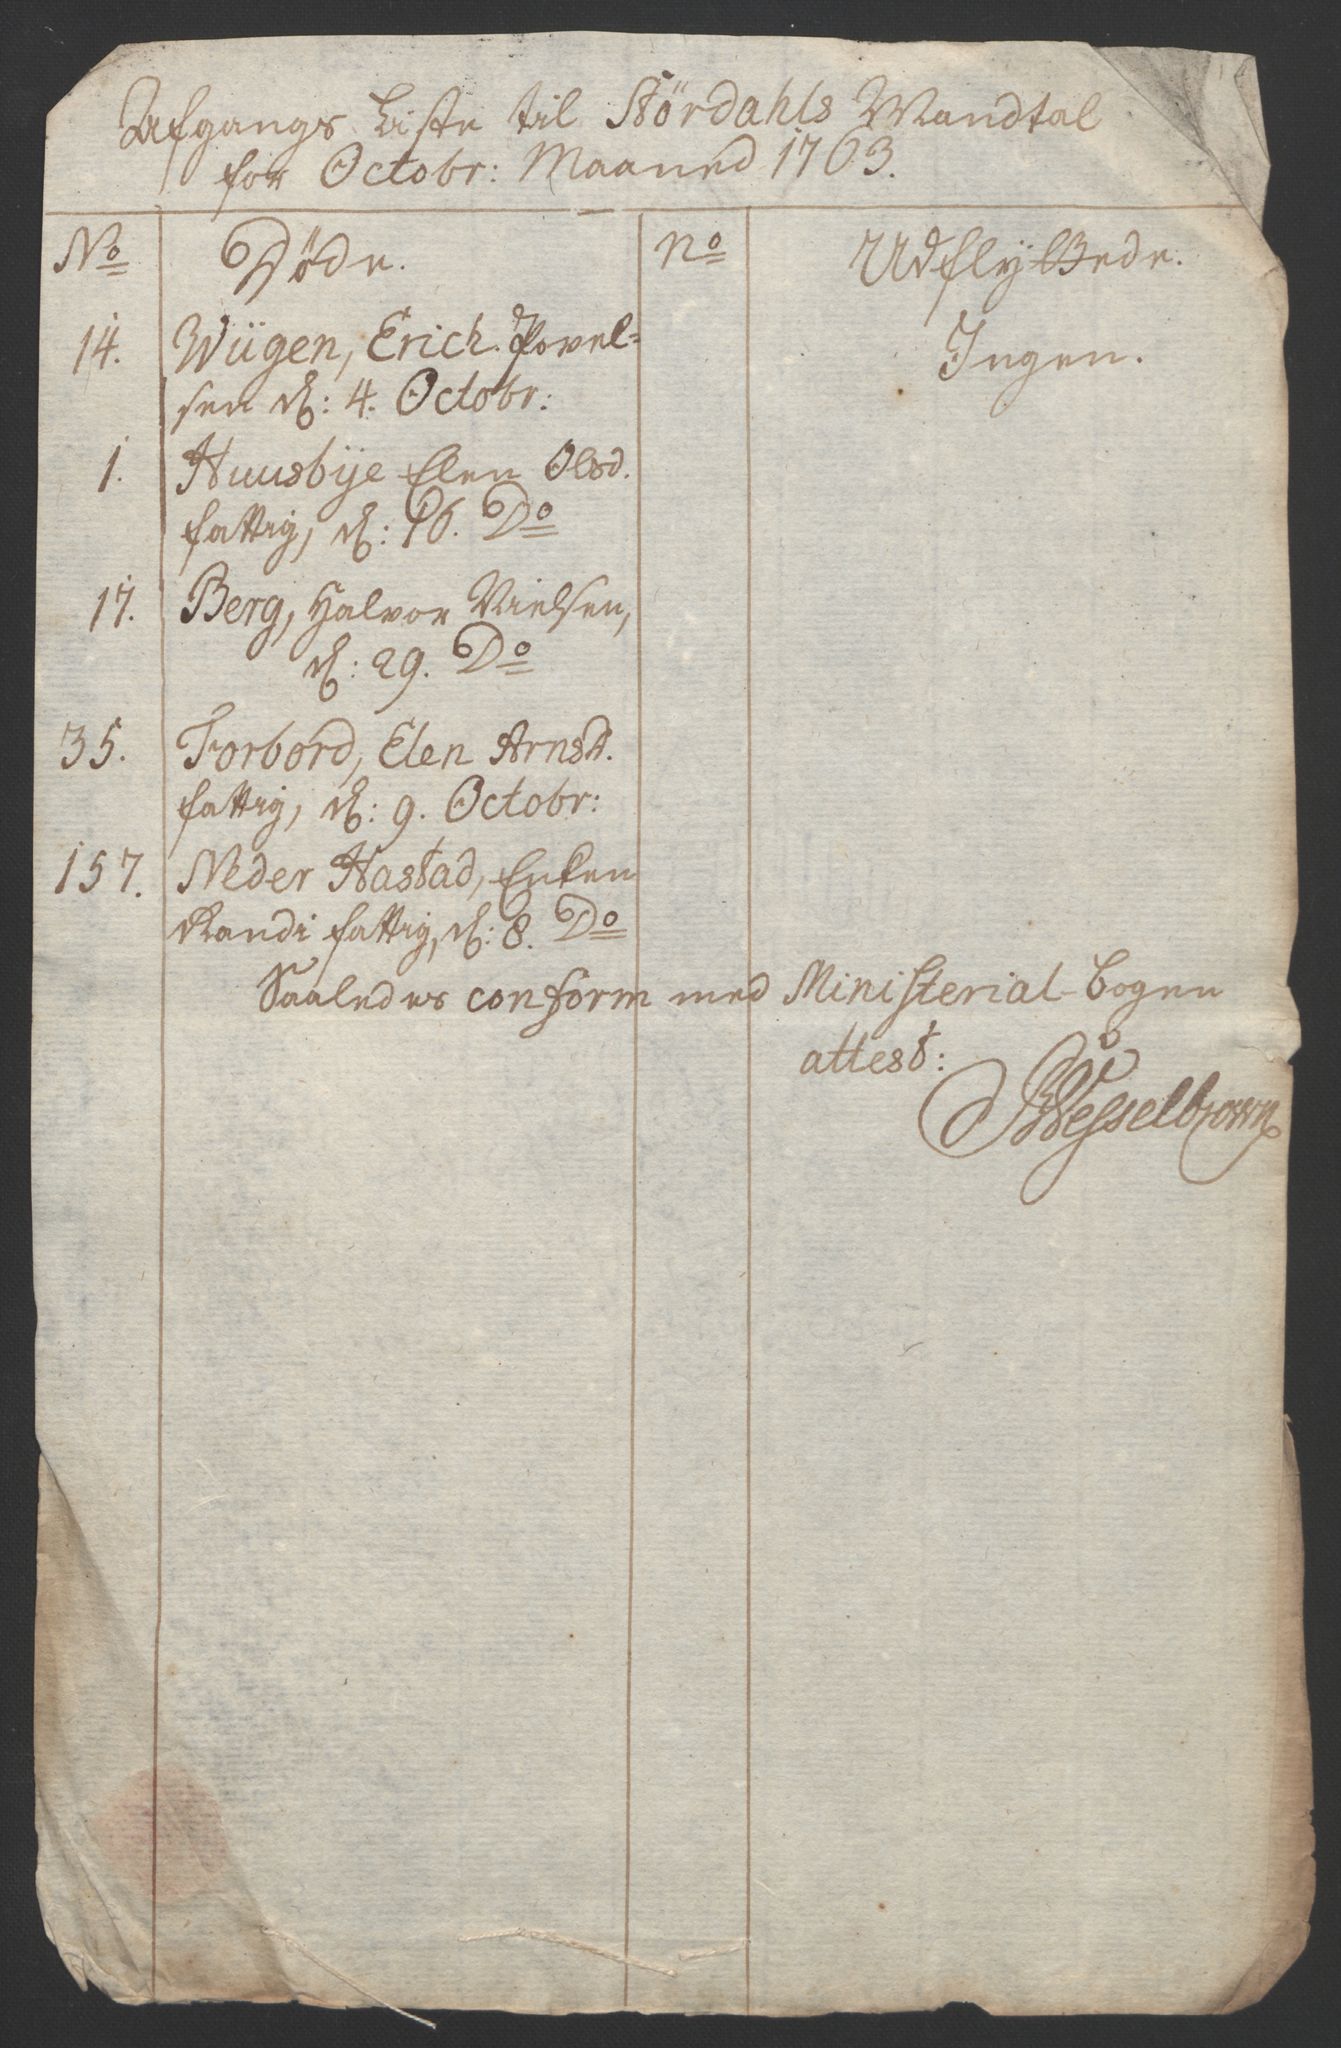 Afgangs Liste til Stördahls Mandtal
for Octobr: Maaned 1763.
No Döde. No Udflyttede.
14. Wiigen, Erich Povel- Ingen.
sen d: 4. Octobr:
1. Huusbÿe Elen Olsd.
fattig, d: 16. Do
17. Berg, Halvor Nielsen,
d: 29. Do
35. Forbord, Elen Arnsd.
fattig, d: 9. Octobr:
157. Neder Hastad, Enken
Randi fattig, d: 8. Do
Saaledes conform med Ministerial-bogen
attest:
Wesselbrown